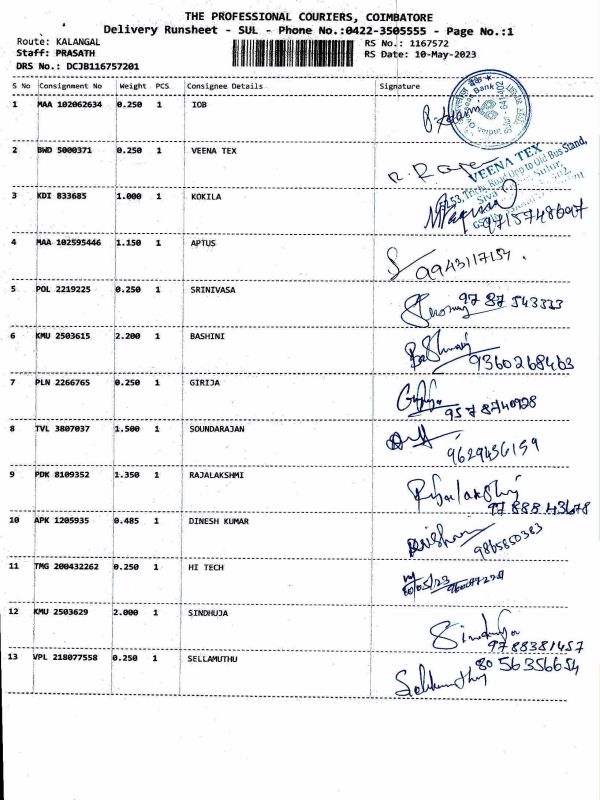 THE PROFESSIONAL COURIERS, COIMBATORE
Delivery Runsheet - SUL - Phone No.:0422-3505555 - Page No.:1
Route: KALANGAL
RS No.: 1167572
Staff: PRASATH
RS Date: 10-May-2023
DRS No.: DCJB116757201
S No Consignment No Weight PCS Consignee Details Signature
1 MAA 102062634 0.250 1 IOB
2 BWD 5000371 0.250 1 VEENA TEX
VEENA TEX
3 KDI 833685 1.000 1 KOKILA
4 MAA 102595446 1.150 1 APTUS
9943117154.
5 POL 2219225 0.250 1 SRINIVASA
97 87 543333
6 KMU 2503615 2.200 1 BASHINI
9360268463
7 PLN 2266765 0.250 1 GIRIJA
9578740928
8 TVL 3807037 1.500 1 SOUNDARAJAN
9629456159
9 PDK 8109352 1.350 1 RAJALAKSHMI
97888 43678
10 APK 1205935 0.485 1 DINESH KUMAR
9865850383
11 TMG 200432262 0.250 1 HI TECH
12 KMU 2503629 2.000 1 SINDHUJA
9788381457
13 VPL 218077558 0.250 1 SELLAMUTHU
80 56356654